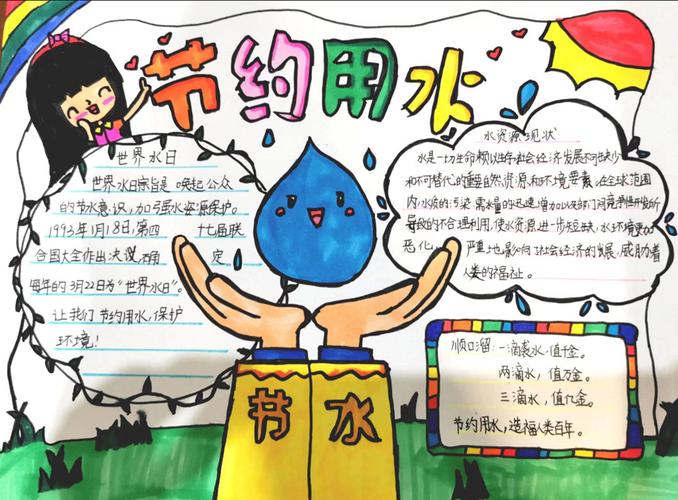 节约用水
世界水日
世界水日宗旨是唤起公众
的节水意识，加强水资源保护。
1993年1月18日，第四十七届联
合国大会作出决议确定
每年的3月22日为“世界水日”。
让我们节约用水，保护
环境！
水资源现状
水是一切生命赖以生存，社会经济发展不可缺少
和不可替代的重要自然资源和环境要素。在全球范围
内，水质的污染、需水量的迅速增加以及部门间竞争性开发所
导致的不合理利用，使水资源进一步短缺，水环境更加
恶化，严重地影响了社会经济的发展，威胁着
人类的福祉。
顺口溜：一滴水，值千金。
两滴水，值万金。
三滴水，值亿金。
节约用水，造福人类百年。
节水